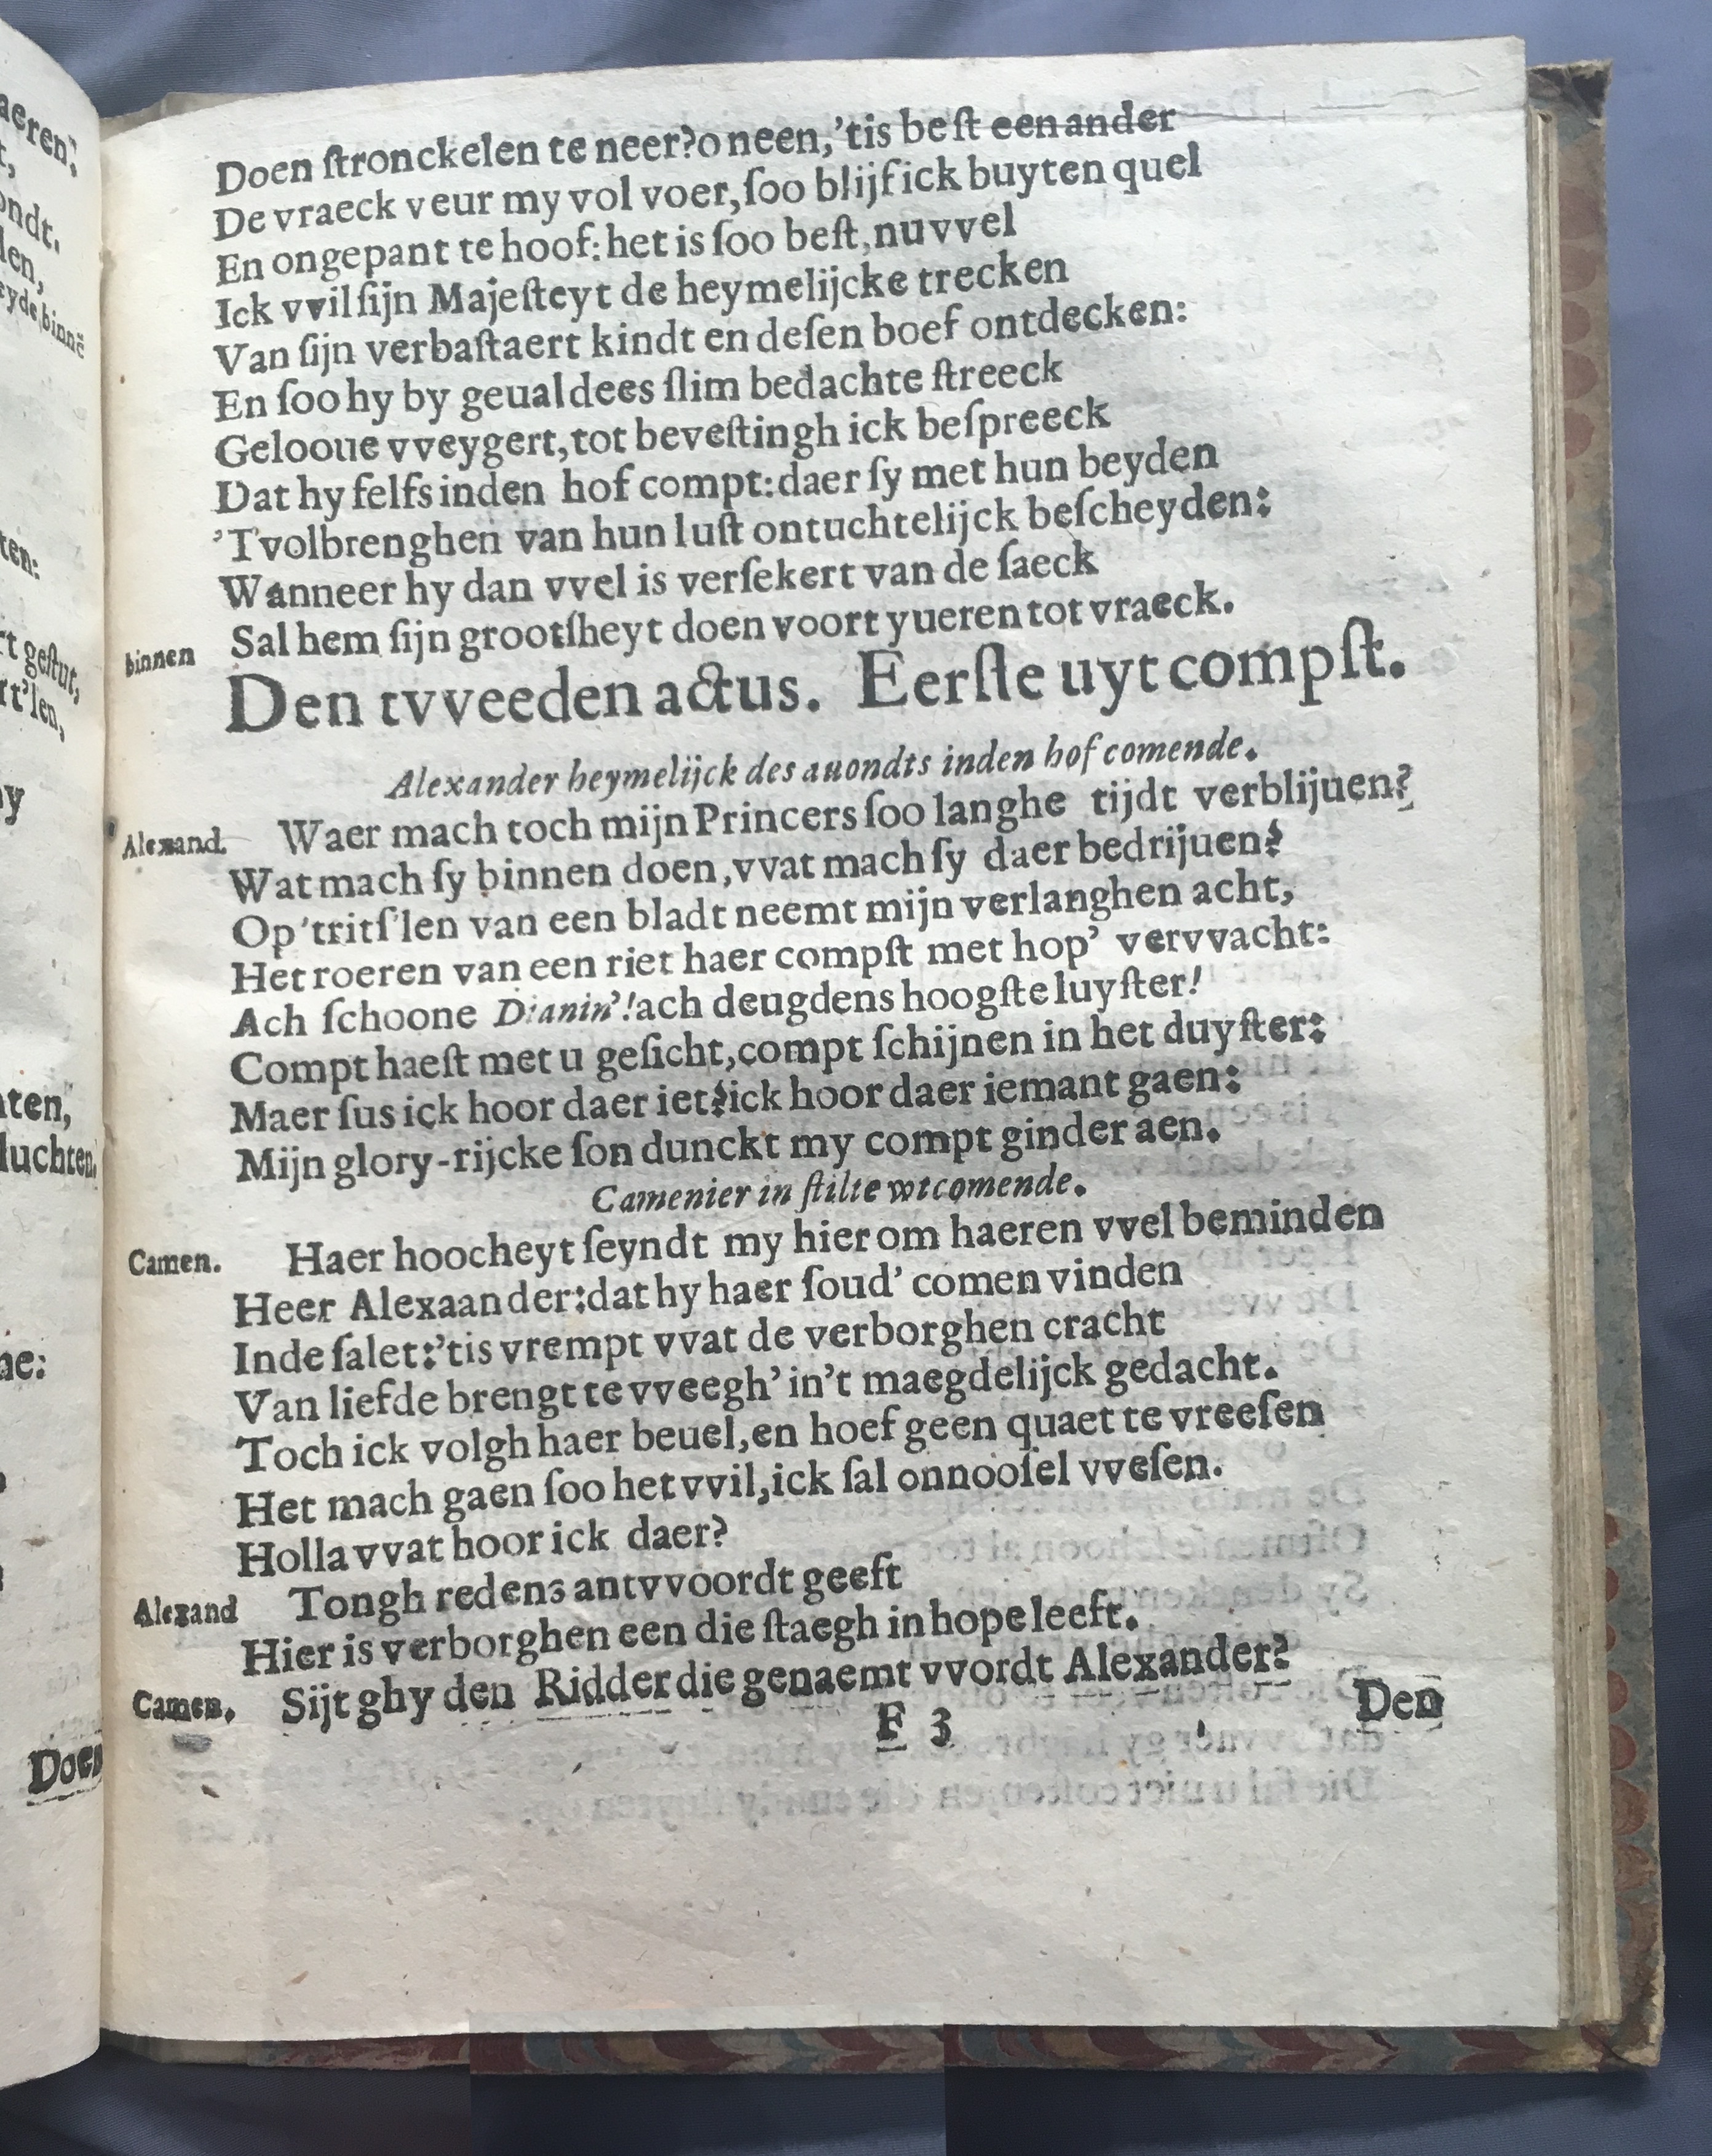 Doen ſtronckelen te neer?o neen,’tis beſt een ander
De vraeck veur my vol voer,ſoo blijf ick buyten quel
En ongepant te hoof:het is ſoo beſt,nu vvel
Ick vvil ſijn Majeſteyt de heymelijcke trecken
Van ſijn verbaſtaert kindt en deſen boef ontdecken:
En ſoo hy by geual dees ſlim bedachte ſtreeck
Gelooue vveygert,tot beveſtingh ick beſpreeck
Dat hy felfs inden hof compt:daer ſy met hun beyden
’Tvolbrenghen van hun luſt ontuchtelijck beſcheyden:
Wanneer hy dan vvel is verſekert van de ſaeck
binnen Sal hem ſijn grootſheyt doen voort yueren tot vraeck.
Den tvveeden actus. Eerſte uyt compſt.
Alexander heymelijck des auondts inden hof comende.
Alexand. Waer mach toch mijn Princers ſoo langhe tijdt verblijuen?
Wat mach ſy binnen doen,vvat mach ſy daer bedrijuen?
Op’tritſ’len van een bladt neemt mijn verlanghen acht,
Het roeren van een riet haer compſt met hop’ vervvacht:
Ach ſchoone Dianin’!ach deugdens hoogſte luyſter!
Compt haeſt met u geſicht,compt ſchijnen in het duyſter:
Maer ſus ick hoor daer iet?ick hoor daer iemant gaen:
Mijn glory-rijcke ſon dunckt my compt ginder aen.
Camenier in ſtilte wtcomende.
Camen. Haer hoocheyt ſeyndt my hier om haeren vvel beminden
Heer Alexaander:dat hy haer ſoud’ comen vinden
Inde ſalet:’tis vrempt vvat de verborghen cracht
Van liefde brengt te vveegh’ in’t maegdelijck gedacht.
Toch ick volgh haer beuel,en hoef geen quaet te vreeſen
Het mach gaen ſoo het vvil,ick ſal onnooſel vveſen.
Holla vvat hoor ick daer?
Alexand Tongh redens antvvoordt geeft
Hier is verborghen een die ſtaegh in hope leeft.
Camen. Sijt ghy den Ridder die genaemt vvordt Alexander?
F 3 Den